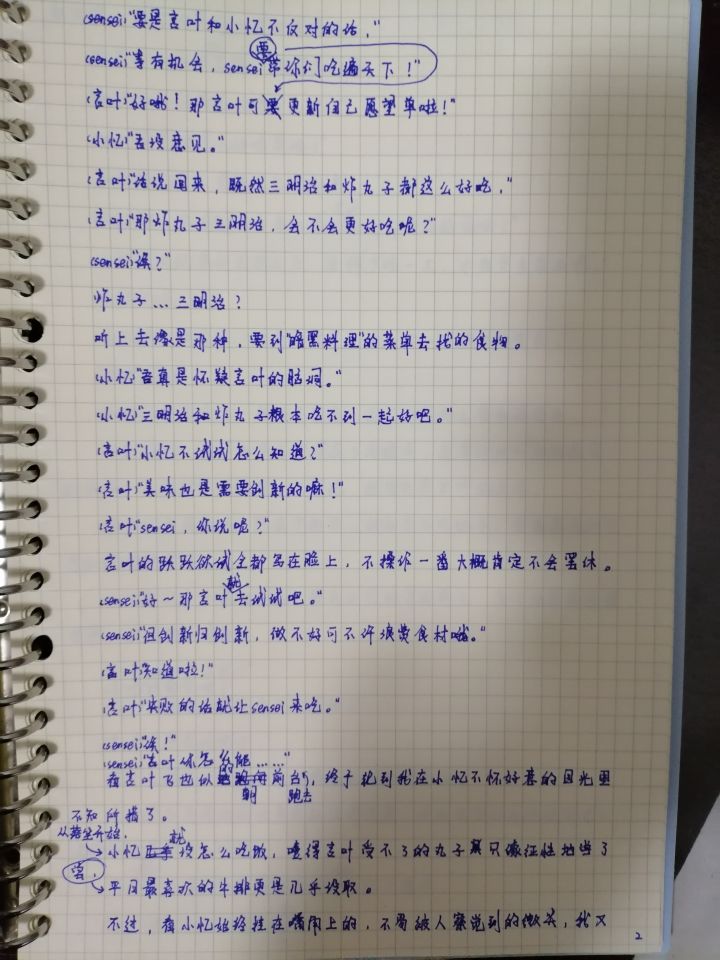 (sensei)"要是言叶和小忆不反对的话,"
(sensei)"等有机会, sensei要带你们吃遍天下!"
(言叶)"好哦! 那言叶可要更新自己愿望单啦!"
(小忆)"吾没意见。"
(言叶)"话说回来, 既然三明治和炸丸子都这么好吃,"
(言叶)"那炸丸子三明治, 会不会更好吃呢?"
(sensei)"诶?"
炸丸子...三明治?
听上去像是那种, 要到"暗黑料理"的菜单去找的食物。
(小忆)"吾真是怀疑言叶的脑洞。"
(小忆)"三明治和炸丸子根本吃不到一起好吧。"
(言叶)"小忆不试试怎么知道?"
(言叶)"美味也是需要创新的嘛!"
(言叶)"sensei, 你说呢?"
言叶的跃跃欲试全都写在脸上, 不操作一番大概肯定不会罢休。
(sensei)"好~那言叶就去试试吧。"
(sensei)"但创新归创新, 做不好可不许浪费食材哦。"
(言叶)"知道啦!"
(言叶)"失败的话就让sensei来吃。"
(sensei)"诶!"
(sensei)"言叶你怎么能……"
看言叶飞也似的朝前台跑去, 终于轮到我在小忆不怀好意的目光里
不知所措了。
从落坐开始,
小忆就没怎么吃饭, 噎得言叶受不了的丸子只像征性地当了
尝,
平日最喜欢的牛排更是几乎没取。
不过, 看小忆始终挂在嘴角上的, 不易被人察觉到的微笑, 我又
2